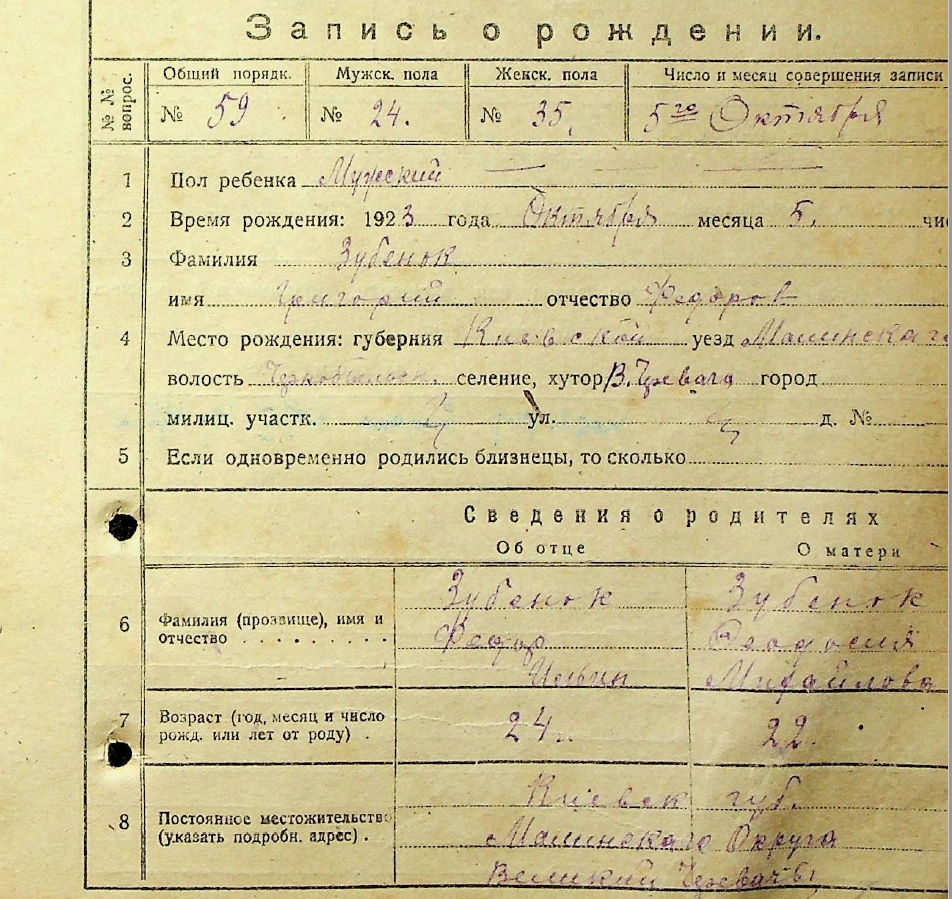 Запись о рождении.
№ № вопрос. Общий порядк. Мужск. пола Женск. пола Число и месяц совершения записи
№ 59 № 24. № 35. 5го Октября
1 Пол ребенка Мужский
2 Время рождения: 1923 года Октября месяца 5. чис
3 Фамилия Зубенок
имя Григорий отчество Федоров
4 Место рождения: губерния Киевской уезд Малинскаго
волость Чернобыльск. селение, хутор В. Чревача город
милиц. участк. ул. д. №
5 Если одновременно родились близнецы, то сколько
Сведения о родителях
Об отце О матери
6 Фамилия (прозвище), имя и отчество
Зубенок Зубенок
Федор Феодосия
Ильин Михайлова
7 Возраст (год, месяц и число рожд. или лет от роду) .
24. 22.
8 Постоянное местожительство (указать подробн. адрес) .
Киевск губ.
Малинскаго Округа
Великий